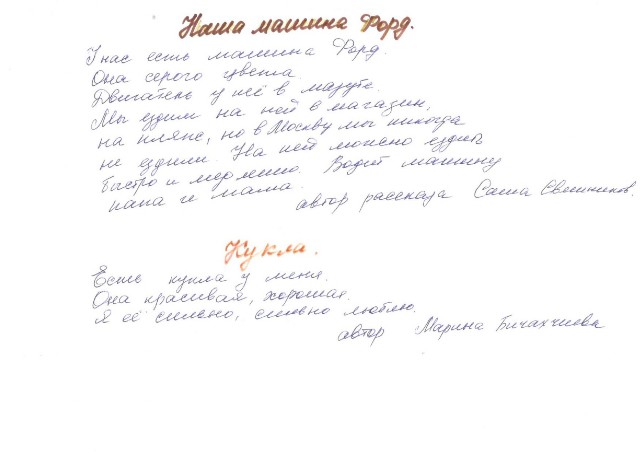 Наша машина Форд.
У нас есть машина Форд.
Она серого цвета.
Двигатель у неё в мазуте.
Мы ездим на ней в магазин,
на пляж, но в Москву мы никогда
не ездили. На ней можно ездить
быстро и медленно. Водит машину
папа и мама.
автор рассказа Саша Свешников.
Кукла.
Есть кукла у меня.
Она красивая, хорошая.
Я её сильно, сильно люблю.
автор Марина Бичахчиева